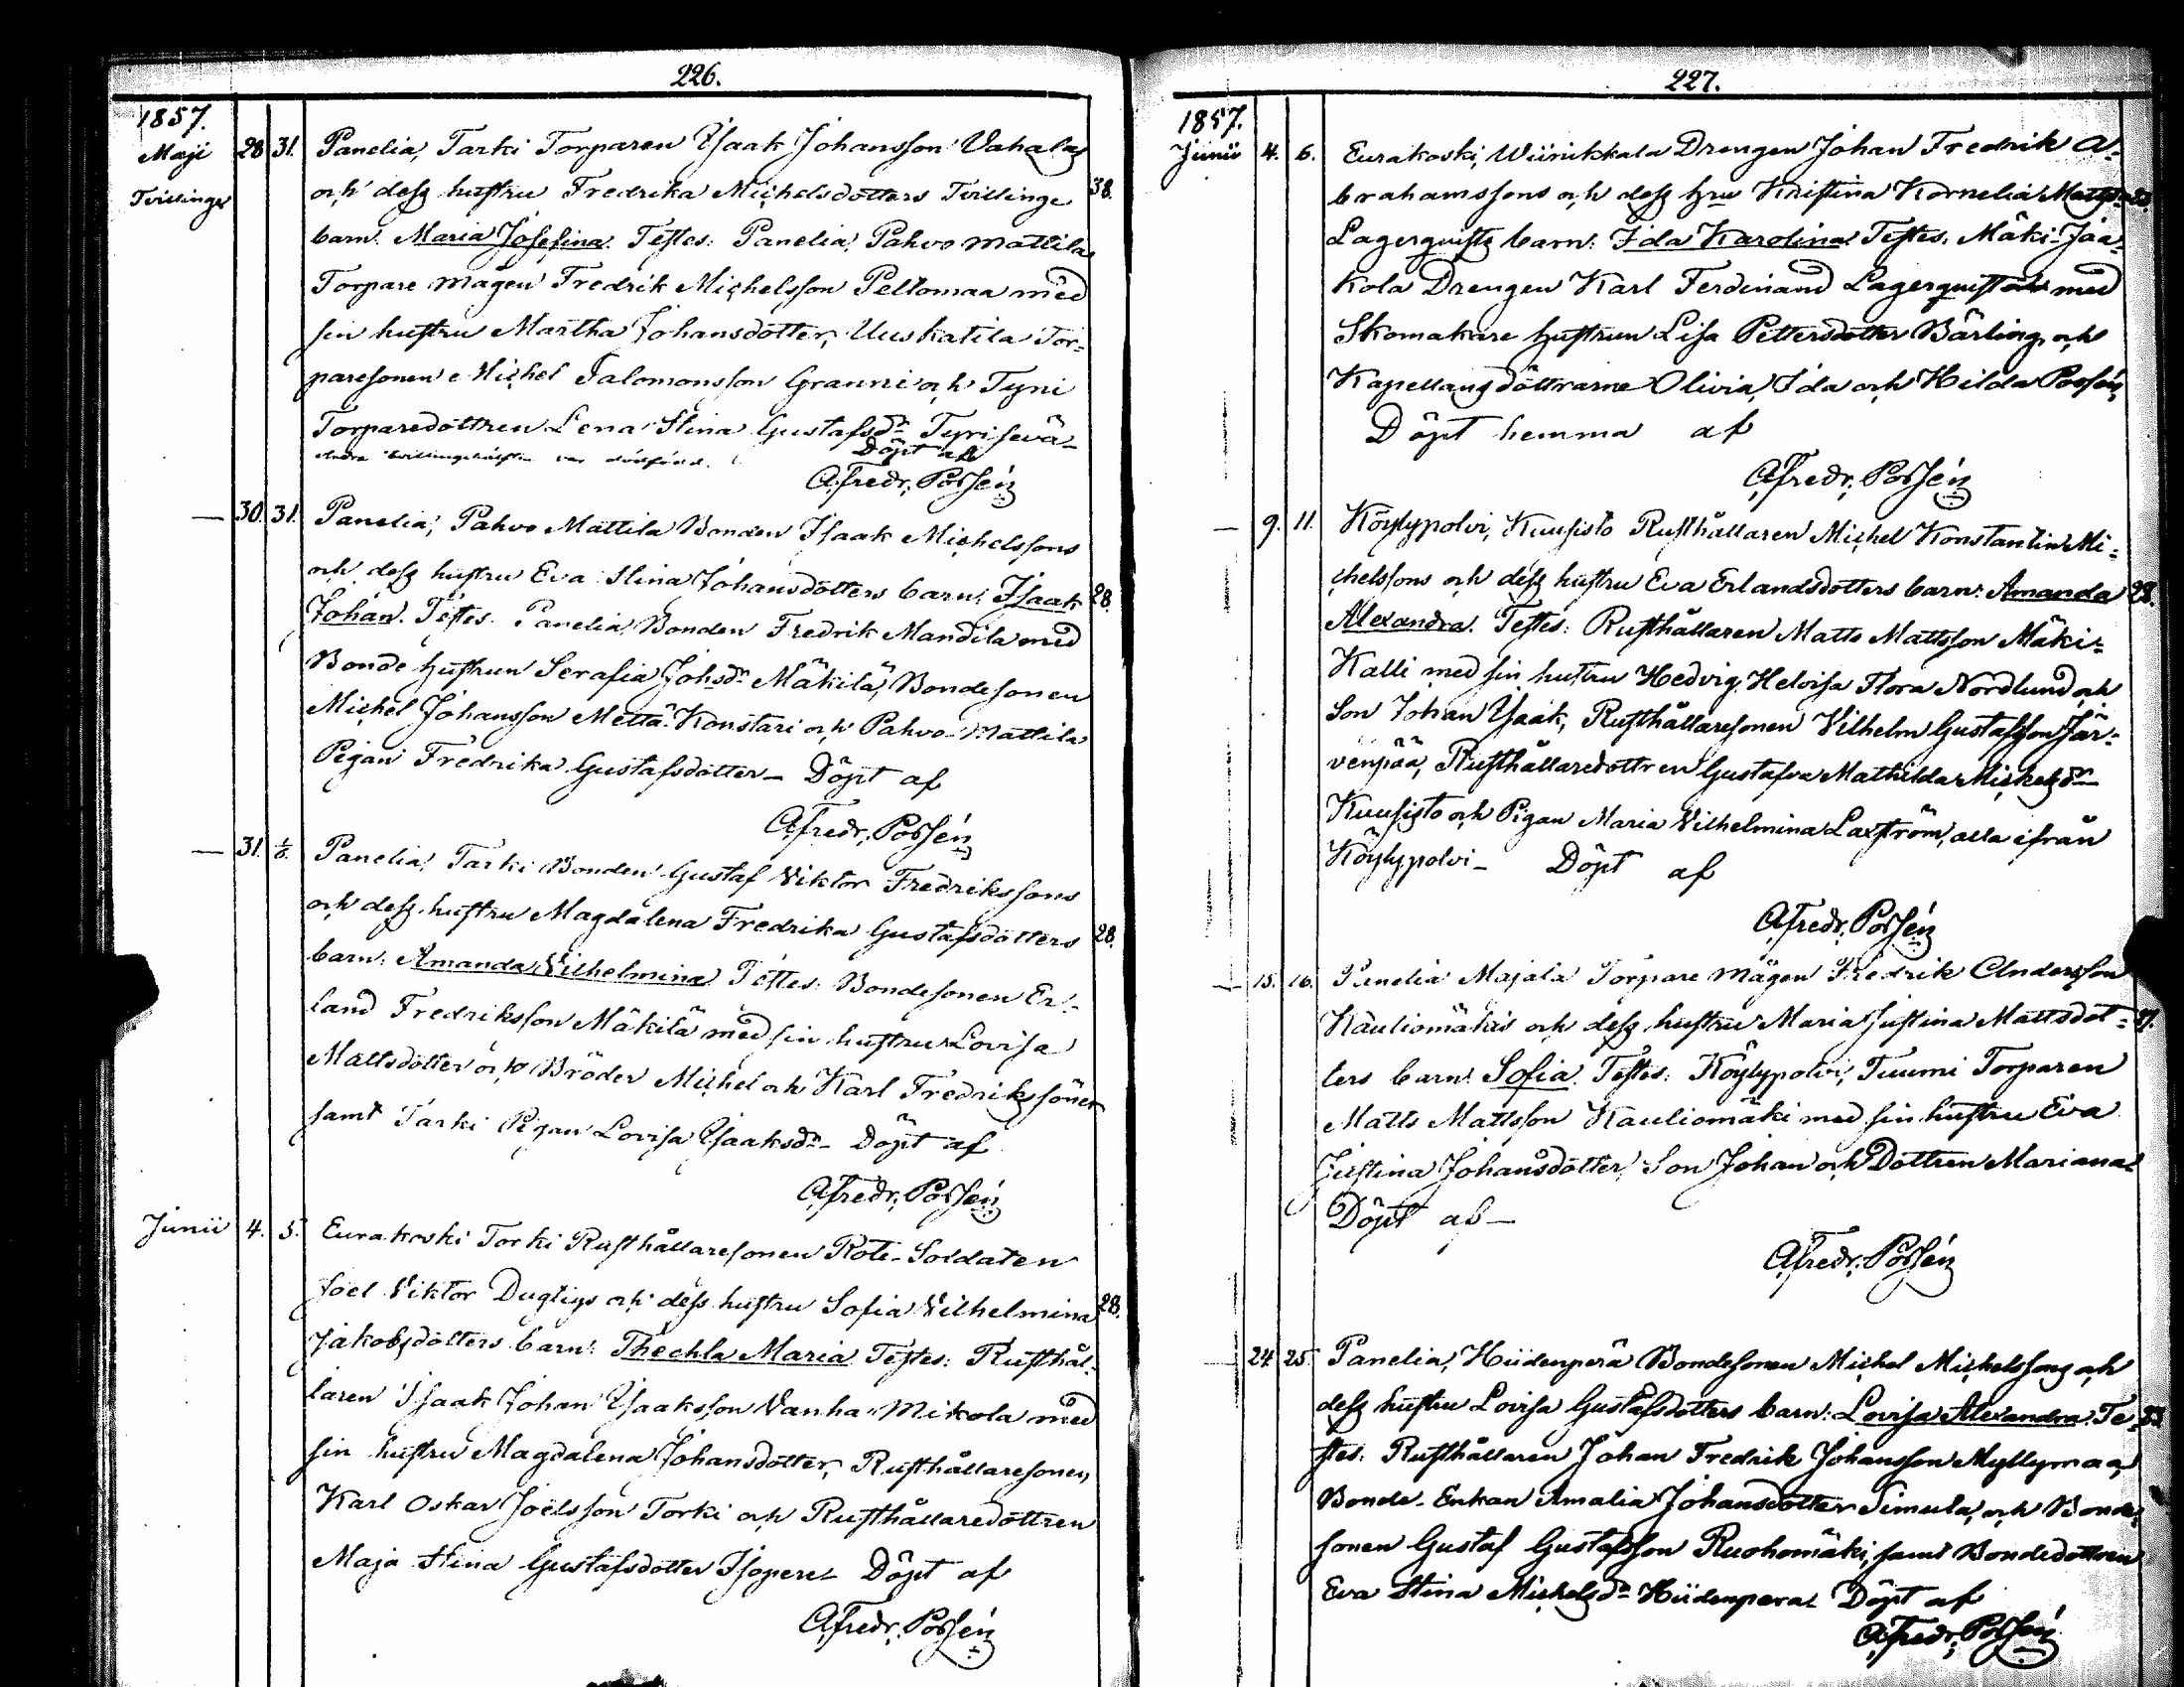 226.
1857.
Maji 28 31. Panelia, Tarki Torparen Isaak Johansson Vahalas
Tvillingar och dess hustru Fredrika Michelsdotters Tvillinge 38.
barn: Maria Josefina. Testes: Panelia, Pahvo Mattila
Torpare mågen Fredrik Michelsson Peltomaa med
sin hustru Martha Johansdotter, Uuskatila Tor=
paresonen Michel Salomonsson Granni och Tyni
Torparedottren Lena Stina Gustafsdr Tyrisevä_
Andra tvillingehälften var dödfödd. Döpt af
A. Fredr. Possén
— 30. 31. Panelia, Pahvo Mattila Bonden Isaak Michelssons
och dess hustru Eva Stina Johansdotters barn: Isaak 28.
Johan. Testes: Panelia, Bonden Fredrik Mandila med
Bonde hustrun Serafia Johsdr Mäkilä, Bondesonen
Michel Johansson Mettä-Konstari och Pahvo-Mattila
Pigan Fredrika Gustafsdotter_ Döpt af
A. Fredr. Possén
— 31. 1/6. Panelia, Tarki Bonden Gustaf Viktor Fredrikssons
och dess hustru Magdalena Fredrika Gustafsdotters 28.
barn: Amanda Vilhelmina. Testes: Bondesonen Er=
land Fredriksson Mäkilä med sin hustru Lovisa
Mattsdotter och Bröder Michel och Karl Fredrikssöner
samt Tarki Pigan Lovisa Isaaksdr_ Döpt af
A. Fredr. Possén
Junii 4. 5. Eurakoski Torki Rusthållaresonen Rote-Soldaten
Joel Viktor Dugtigs och dess hustru Sofia Vilhelmina 28.
Jakobsdotters barn: Thechla Maria. Testes: Rusthål=
laren Isaak Johan Isaaksson Vanha-Mikola med
sin hustru Magdalena Johansdotter, Rusthållaresonen
Karl Oskar Joelsson Torki och Rusthållaredottren
Maja Stina Gustafsdotter Isopere_ Döpt af
A. Fredr. Possén
227.
1857.
Junii 4. 6. Eurakoski, Wiinikkala Drengen Johan Fredrik A=
brahamssons och dess hru Kristina Kornelia Mattsd
Lagerquists barn: Ida Karolina. Testes: Mäki-Jaa=
kola Drengen Karl Ferdinand Lagerquist med
Skomakare hustrun Lisa Pettersdotter Bärling, och
Kapellansdöttrarne Olivia, Ida och Hilda Possén,
Döpt hemma af
A. Fredr. Possén
— 9. 11. Köylypolvi, Kuusisto Rusthållaren Michel Konstantin Mi=
chelssons och dess hustru Eva Erlandsdotters barn: Amanda 28.
Alexandra. Testes: Rusthållaren Matts Mattsson Mäki=
Kalli med sin hustru Hedvig Heloisa Flora Nordlund, och
Son Johan Isaak, Rusthållaresonen Vilhelm Gustafsson Jär=
venpää, Rusthållaredottren Gustafva Mathilda Michelsdr
Kuusisto och Pigan Maria Vilhelmina Laxström, alla ifrån
Köylypolvi_ Döpt af
A. Fredr. Possén
— 15. 16. Panelia Majala Torpare mågen Fredrik Andersson
Kauliomäkis och dess hustru Maria Justina Mattsdot=
ters barn: Sofia. Testes: Köylypolvi, Tuumi Torparen
Matts Mattsson Kauliomäki med sin hustru Eva
Justina Johansdotter, Son Johan och Dottren Mariana_
Döpt af_
A. Fredr. Possén
— 24. 25. Panelia, Hiidenperä Bondesonen Michel Michelssons och
dess hustru Lovisa Gustafsdotters barn: Lovisa Alexandra. Te=
stes: Rusthållaren Johan Fredrik Johansson Myllymaa,
Bonde-Enkan Amalia Johansdotter Simula, och Bonde=
sonen Gustaf Gustafsson Ruohomäki, samt Bondedottren
Eva Stina Michelsdr Hiidenpera_ Döpt af
A. Fredr. Possén